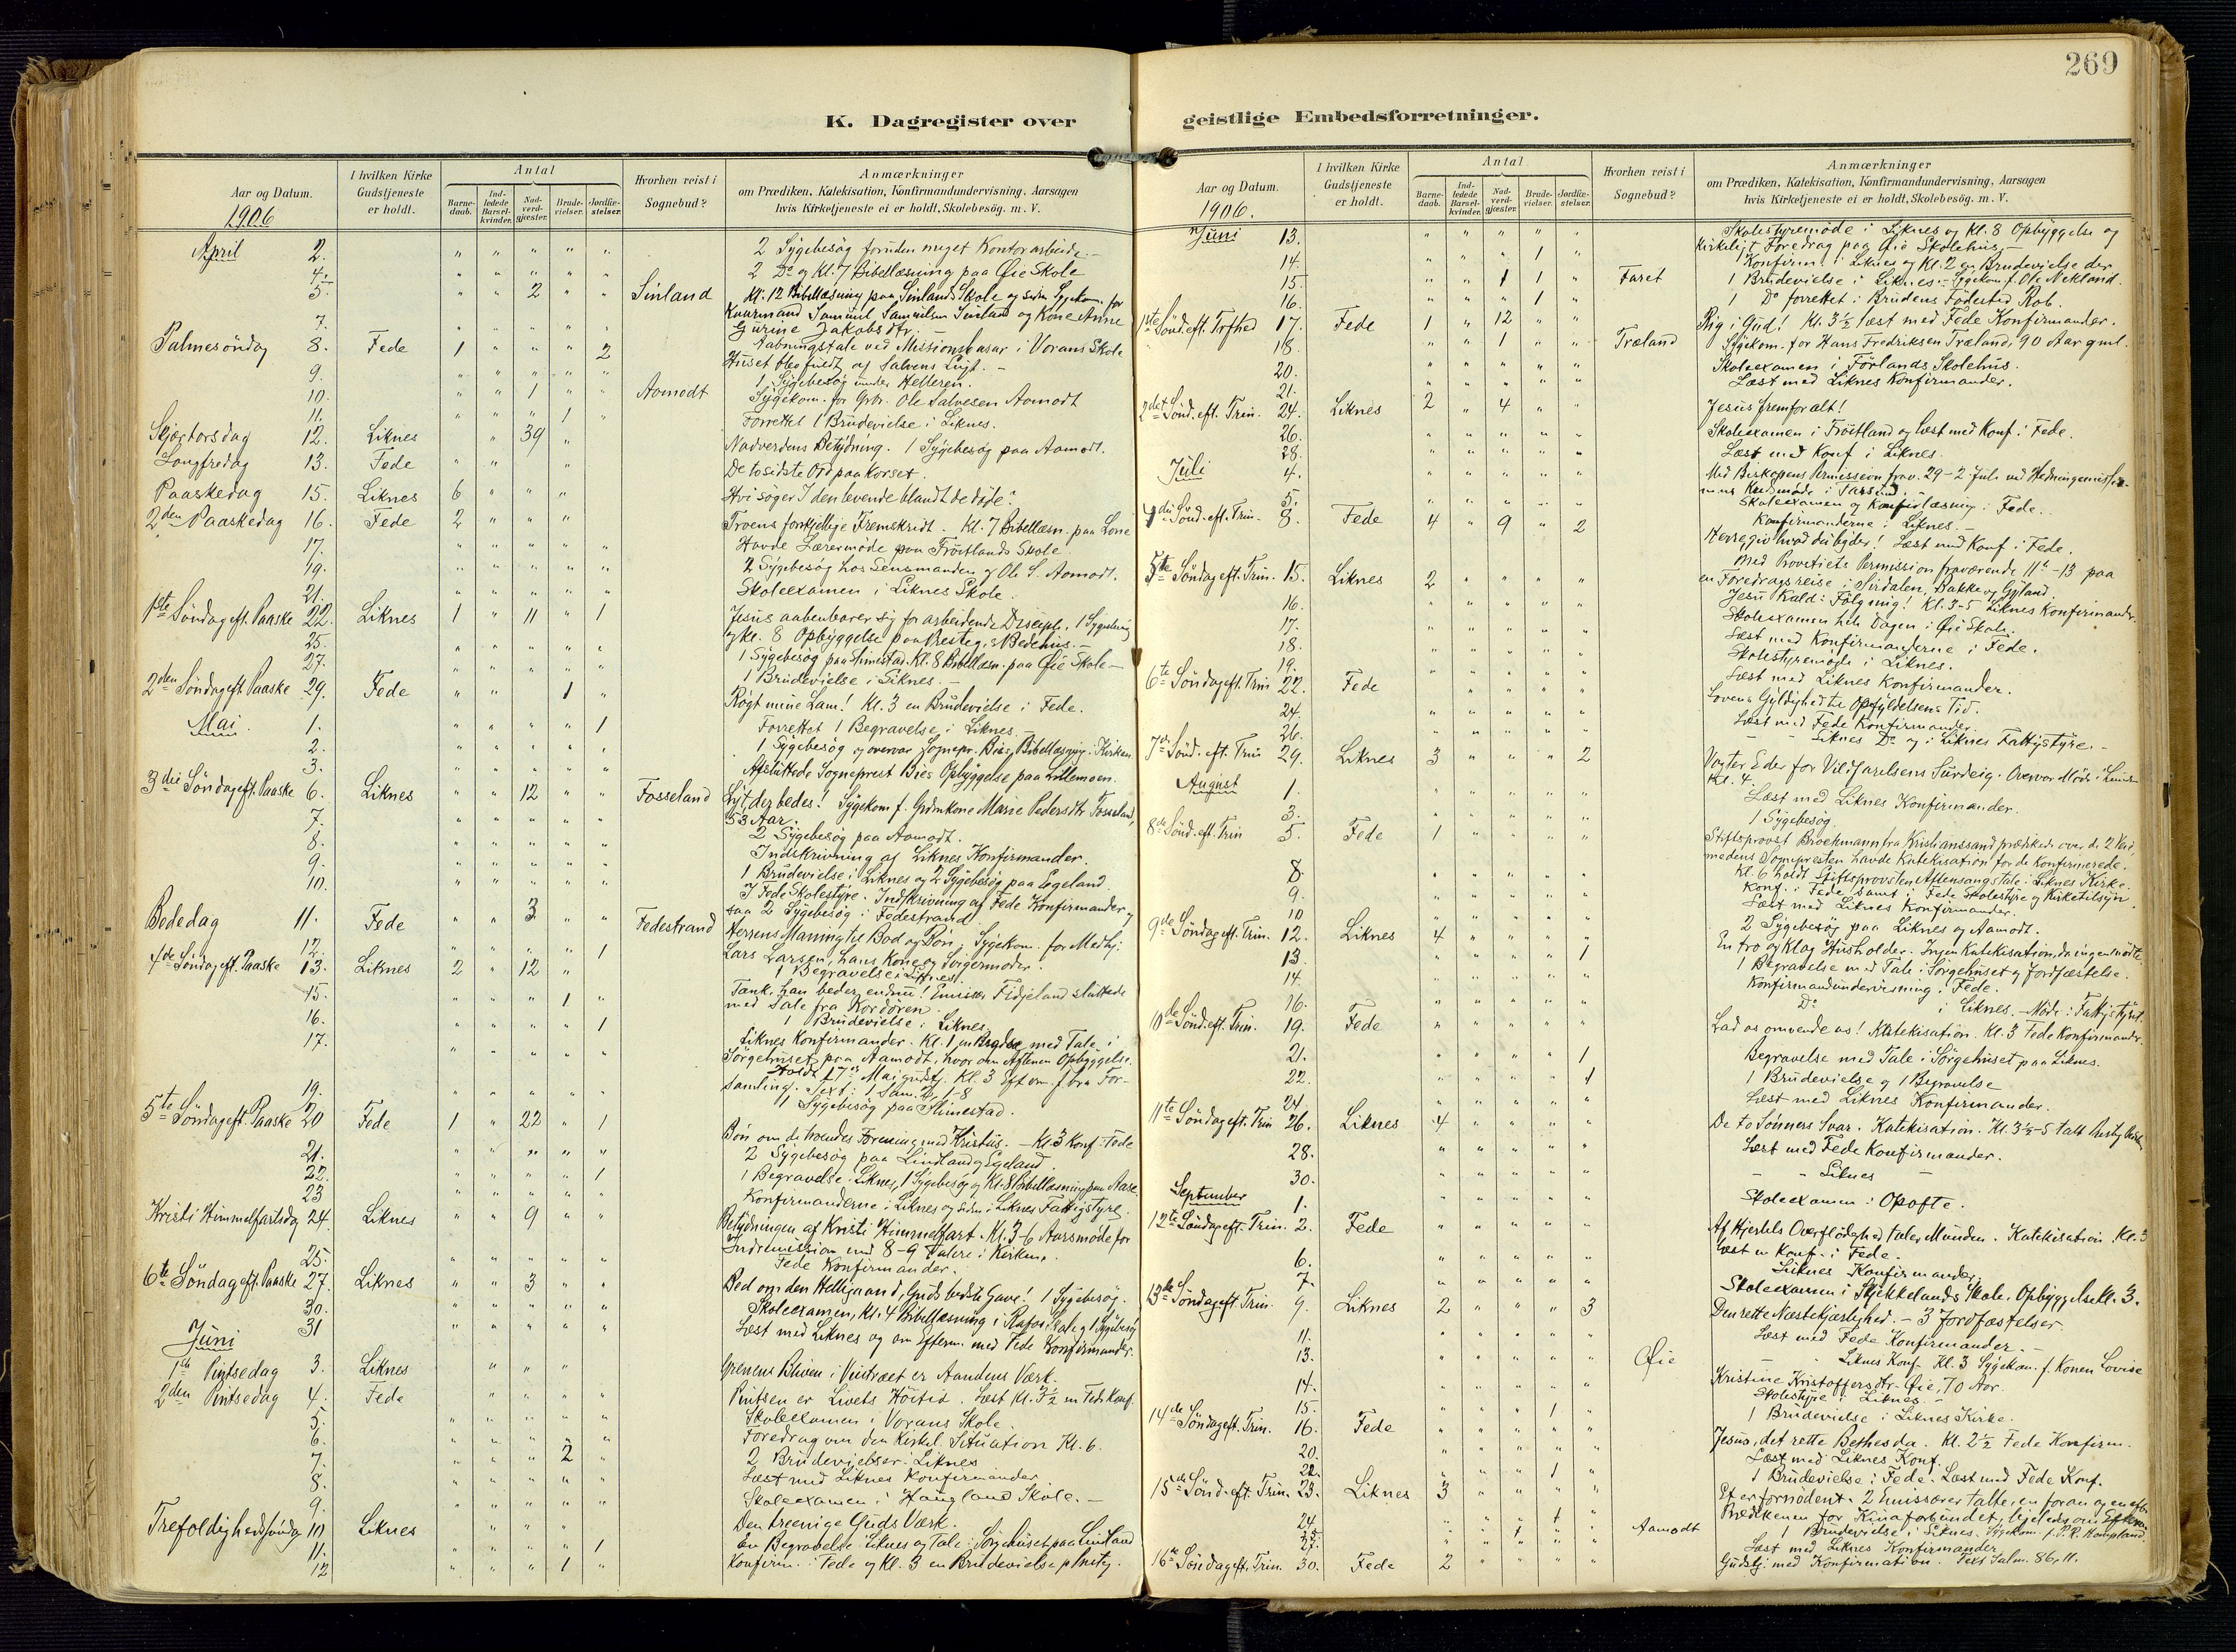 269
K. Dagregister over geistlige Embedsforretninger.
Aar og Datum.
1906
I hvilken Kirke Gudstjeneste er holdt.
Antal
Barnedaab.
Indledede Barselkvinder.
Nadverdgjæster.
Brudevielser.
Jordfæstelser.
Hvorhen reist i Sognebud?
Anmærkninger
om Prædiken, Katekisation, Konfirmandundervisning, Aarsagen
hvis Kirketjeneste ei er holdt, Skolebesög. m. V.
April 2. " " " " " 2 Sygebesøg foruden meget Kontorarbeide.-
4. " " " " " 2 Do og Kl. 7 Bibellæsning paa Øie Skole
5. " " 2 " " Sinland Kl. 12 Bibellæsning paa Sinlands Skole og siden Sygekom. for
Kaarmand Samuel Samuelsen Sinland og Kone Anne
Gurine Jakobsdtr. -
7. " " " " " Aabningstale ved Missionsbasar i Vorans Skole
Palmesöndag 8. Fede 1 " " " 2 Huset blev fuldt af Salvens Lugt. -
9. " " " " " 1 Sygebesøg under Helleren.
10. " " 1 " " Aamodt Sygekom. for Grbr. Ole Salvesen Aamodt
11. " " " 1 " Forrettet 1 Brudevielse i Liknes.
Skjærtorsdag 12. Liknes " 39 " Nadverdens Betydning. 1 Sygebesøg paa Aamodt.
Langfredag 13. Fede " " " De to sidste Ord paa Korset.
Paaskedag 15. Liknes 6 " " " Hvi söger I den levende blandt de døde?
2den Paaskedag 16. Fede 2 " " " Troens forskjellige Fremskridt. Kl. 7 Bibellæsn. paa
17. " " " " " Havde Lærermøde paa Trøitlands Skole.
19. " " " " " 2 Sygebesøg hos Lensmanden og Ole S. Aamodt.
21. " " " " " Skoleexamen i Liknes Skole.
1ste Søndag eft. Paaske 22. Liknes 1 " 11 " 1 Jesus aabenbarer sig for arbeidende Disciple, 1 Sygebesøg
og Kl. 8 Opbyggelse paa Presteg. Bedehus. -
25. " " " " " 1 Sygebesøg paa Slimestad. Kl. 8 Bibellæsn. paa Øie Skole -
27. " " " " " 1 Brudevielse i Liknes. -
2den Søndag eft. Paaske 29. Fede " " 1 " Røgt mine Lam! Kl. 3 en Brudevielse i Fede.
Mai 1. " " " " 1 Forrettet 1 Begravelse i Liknes.
2. " " " " " 1 Sygebesøg og overvar Sognepr. Bies Bibellæsning i Kirken
3. " " " " " Afsluttede Sogneprest Bies Opbyggelse paa Lillemoen.
3die Søndag eft. Paaske 6. Liknes " " 12 " " Fosseland Lyt, der bedes! Sygekom f. Grdmkone Marie Pedersdtr Fosseland,
53 Aar.
7. " " " " " 2 Sygebesøg paa Aamodt.
8. " " " " " Indskrivning af Liknes Konfirmander.
9. " " " " " 1 Brudevielse i Liknes og 2 Sygebesøg paa Egeland.
10. " " " " " I Fede Skolestyre. Indskrivning af Fede Konfirmander og
saa 2 Sygebesøg i Fedestrand
Bededag 11. Fede " " 3 " " Fedestrand Herrens Maning til Bod og Bön; Sygekom. for Medhj.
Lars Larsen, hans Kone og Svigermoder.
12. " " " " 1 1 Begravelse i Liknes.
4de Søndag eft. Paaske 13. Liknes 2 " 12 " Tænk, han beder endnu! Emissær Fidjeland sluttede
med Tale fra Kordören.
15. " " " 1 " 1 Brudevielse i Liknes.
16. " " " " 1 Liknes Konfirmander. Kl. 1 en Begravelse med Tale i
Sørgehuset paa Aamodt, hvor om Aftenen Opbyggelse.
17. " " " " " Holdt 17de Maigudstj. Kl. 3 Eft. om f. bra Forsamling. Text: 1 Sam. 2, 1-8
19. " " " " " 1 Sygebesøg paa Slimestad.
5te Søndag eft. Paaske 20 Fede 1 " 22 " 1 Bön om de troendes Forening med Kristus. - Kl. 3 Konf. i Fede
21. " " " " " 2 Sygebesøg paa Lindland og Egeland.
22. " " " " 1 1 Begravelse i Liknes, 1 Sygebesøg og Kl. 8 Bibellæsning paa Aase.
23 " " " " " Konfirmanderne i Liknes og siden i Liknes Fattigstyre.
Kristi Himmelfartsdag 24. Liknes " " 9 " " Betydningen af Kristi Himmelfart. Kl. 3-6 Aarsmøde for
Indremission med 8-9 Talere i Kirken.
25. " " " " " Fede Konfirmander.
6te Søndag eft. Paaske 27. Liknes " " 3 " " Bed om den Helligaand, Guds bedste Gave! 1 Sygebesøg.
30. " " " " " Skoleexamen, Kl. 4 Bibellæsning i Rafos Skole og 1 Sygebesøg
31 " " " " " Læst med Liknes og om Efterm. med Fede Konfirmander.
Juni
1ste Pintsedag 3. Liknes " " " Grenens Bliven i Vintræet er Aandens Værk.
2den Pintsedag 4. Fede " " " " Pintsen er Livets Høitid. Læst Kl. 3½ m Fede Konf.
5. " " " " " Skoleexamen i Vorans Skole.
6. " " " " " Foredrag om den Kirkel. Situation Kl. 6.
7. " " " 2 " 2 Brudevielser i Liknes
8. " " " " " Læst med Liknes Konfirmander
9. " " " " " Skoleexamen i Haugland Skole. -
Trefoldighedssöndag 10. Liknes " " " " Den treenige Guds Værk.
11. " " " " 1 En Begravelse i Liknes og Tale i Sørgehuset paa Lindland
12 " " " 1 " Konfirm. i Fede og Kl. 3 en Brudevielse
Aar og Datum.
1906.
I hvilken Kirke Gudstjeneste er holdt.
Antal
Barnedaab.
Indledede Barselkvinder.
Nadverdgjæster.
Brudevielser.
Jordfæstelser.
Hvorhen reist i Sognebud?
Anmærkninger
om Prædiken, Katekisation, Konfirmandundervisning, Aarsagen
hvis Kirketjeneste ei er holdt, Skolebesög. m. V.
Juni 13. " " " " " Skolestyremöde i Liknes og Kl. 8 Opbyggelse og
kirkeligt Foredrag paa Øie Skolehus. -
14. " " " 1 " Konfirm. i Liknes og Kl. 2 en Brudevielse der
15. " " 1 1 " Faret 1 Brudevielse i Liknes. - Sygekom f. Ole Nekland.
16. " " " 1 " 1 Do forrettet i Brudens Födested Rob.
1ste Sönd. eft. Trfhed 17. Fede 1 " 12 " " Rig i Gud! Kl. 3½ læst med Fede Konfirmander.
18. " " 1 " " Træland Sygekom. for Hans Fredriksen Træland, 90 Aar gml.
20. " " " " " Skoleexamen i Förlands Skolehus.
21. " " " " " Læst med Liknes Konfirmander.
2det Sönd. eft. Trin. 24. Liknes 2 " 4 " " Jesus fremfor alt!
26. " " " " " Skoleexamen i Tröitland og læst med Konf. i Fede.
28. " " " " " Læst med Konf i Liknes.
Juli 4. " " " " " Med Biskopens Permission frav. 29-2 Juli ved Hedningemissionens Kredsmöde i Farsund.
5. " " " " " Skoleexamen og Konfirlæsning i Fede.
Konfirmanderne i Liknes. -
4de Sönd. eft. Trin. 8. Fede 4 " 9 " 2 Herre, giv hvad du byder! Læst med Konf i Fede.
Med Provstiets Permission fraværende 11te-13 paa
en Foredragsreise i Sirdalen, Bakke og Gyland.
5te Søndag eft. Trin. 15. Liknes 2 " " " " Jesu Kald: Fölg mig! Kl. 3-5 Liknes Konfirmander.
16. " " " " " Skoleexamen hele Dagen i Øie Skole.
17. " " " " " Læst med Konfirmanderne i Fede.
18. " " " " " Skolestyremøde i Liknes.
19. " " " " " Læst med Liknes Konfirmander.
6te Søndag eft. Trin 22. Fede " " " " Lovens Gyldighed te Opfyldelsens Tid.
24. " " " " " Læst med Fede Konfirmander.
26. " " " " " - - Liknes Do og i Liknes Fattigstyre. -
7de Sönd. eft. Trin 29. Liknes 3 " " " 2 Vogter Eder for Vildfarelsens Surdeig. Overvar Möde i
Kl. 4.
August 1. " " " " " Læst med Liknes Konfirmander.
3. " " " " " 1 Sygebesøg.
8de Sönd. eft. Trin 5. Fede 1 " " " " Stiftsprovst Brockmann fra Kristianssand prædikede over de 2
medens Sognepresten havde Katekisation for de Konfirmerede.
Kl. 6 holdt Stiftsprovsten Aftensangstale i Liknes Kirke.
8. " " " " " Konf. i Fede samt i Fede Skolestyre og Kirketilsyn.
9. " " " " " Læst med Liknes Konfirmander.
10 " " " " " 2 Sygebesøg paa Liknes og Aamodt.
9de Søndag eft. Trin. 12. Liknes 4 " " " " En tro og klog Husholder. Ingen Katekisation, da ingen mødte
13. " " " " 1 1 Begravelse med Tale i Sørgehuset og Jordfæstelse.
14. " " " " " Konfirmandundervisning i Fede.
16. " " " " " Do i Liknes. - Møde i Fattigstyret.
10de Sönd. eft. Trin. 19. Fede " " " " " Lad os omvende os! Katekisation. Kl. 3 Fede Konfirmander.
21. " " " " 1 Begravelse med Tale i Sørgehuset paa Liknes.
22. " " " " 1 1 Brudevielse og 1 Begravelse
24. " " " " " Læst med Liknes Konfirmander.
11te Søndag eft. Trin 26. Liknes 4 " " " " De to Sønners Svar. Katekisation. Kl. 3½-5 talt
28. " " " " " Læst med Fede Konfirmander.
30. " " " " " - - Liknes -
September 1. " " " " " Skoleexamen i Opofte.
12te Søndag eft. Trin. 2. Fede " " " " " Af Hjertets Overflödighed taler Munden. Katekisation. Kl. 3
6. " " " " " læst m Konf. i Fede.
7. " " " " " Liknes Konfirmander.
Skoleexamen i Skjekkelands Skole. Opbyggelse Kl. 3.
13de Søndag eft. Trin. 9. Liknes 2 " " " 3 Den rette Næstekjærlighed. - 3 Jordfæstelser.
11. " " " " " Læst med Fede Konfirmander. -
13. " " " " " Øie - Liknes Konf. Kl. 3 Sygekom. f. Konen Lovise
Kristine Kristoffersdtr. Øie, 70 Aar.
14. " " " " " Skolestyre i Liknes. -
15. " " " 1 " 1 Brudevielse i Liknes Kirke.
14de Søndag eft. Trin. 16. Fede " " " " " Jesus, det rette Bethesda. Kl. 2½ Fede Konfirm.
20. " " " " " Læst med Liknes Konf.
22. " " " 1 " 1 Brudevielse i Fede. Læst med Fede Konf.
15de Sönd. eft. Trin. 23. Liknes 3 " " " " Et er fornødent. 2 Emissærer talte, en foran og en efter
Prædikenen for Kinaforbundet,
24 " " " 1 " 1 Brudevielse i Liknes. Sygekom. f.
25. " " 1 " " Aamodt
27. " " " " " Læst med Liknes Konfirmander
16de Søndag eft. Trin. 30. Fede 2 " " " " Gudstj. med Konfirmation. Text Salm. 86, 11.